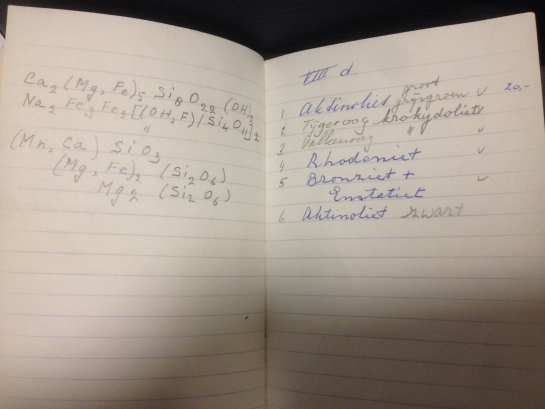 Ca2 (Mg, Fe)5 Si8 O22 (OH)2
Na2 Fe3 Fe2 [(OH, F) / Si4 O11]2
"
(Mn, Ca) Si O3
(Mg, Fe)2 (Si2 O6)
Mg2 (Si2 O6)
VIII d.
groot
1 Aktinoliet grijsgroen v 20,-
2 Tijgeroog krokydoliet v
3 Valkenoog " v
4 Rhodoniet v
5 Bronziet + v
Enstatiet
6 Aktinoliet zwart